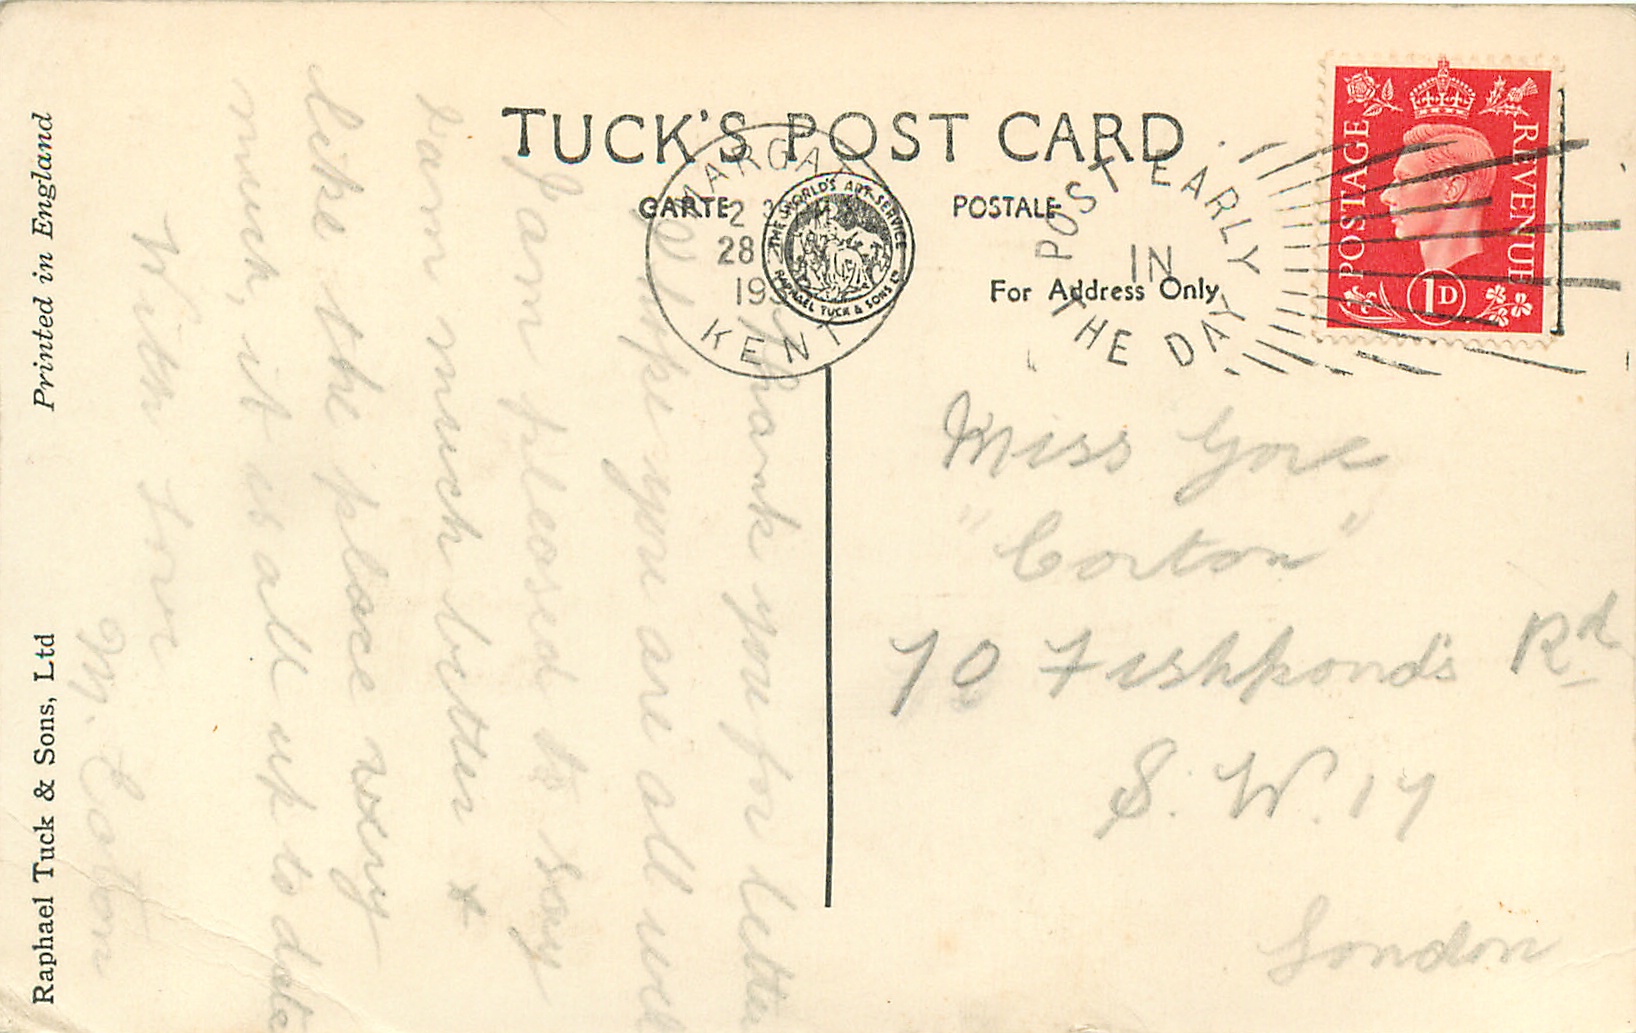 TUCK'S POST CARD
CARTE POSTALE
For Address Only
MARGATE
2 30 PM
28
193
KENT
THE WORLD'S ART SERVICE
RAPHAEL TUCK & SONS LTD
POST EARLY
IN
THE DAY
POSTAGE
REVENUE
1D
Thank you for letter
I hope you are all well
I am pleased to say
I am much better &
like the place very
much, it is all up to date
With love
M. Eaton
Miss Gore
"Corton"
70 Fishponds Rd
S.W.17
London
Printed in England
Raphael Tuck & Sons, Ltd